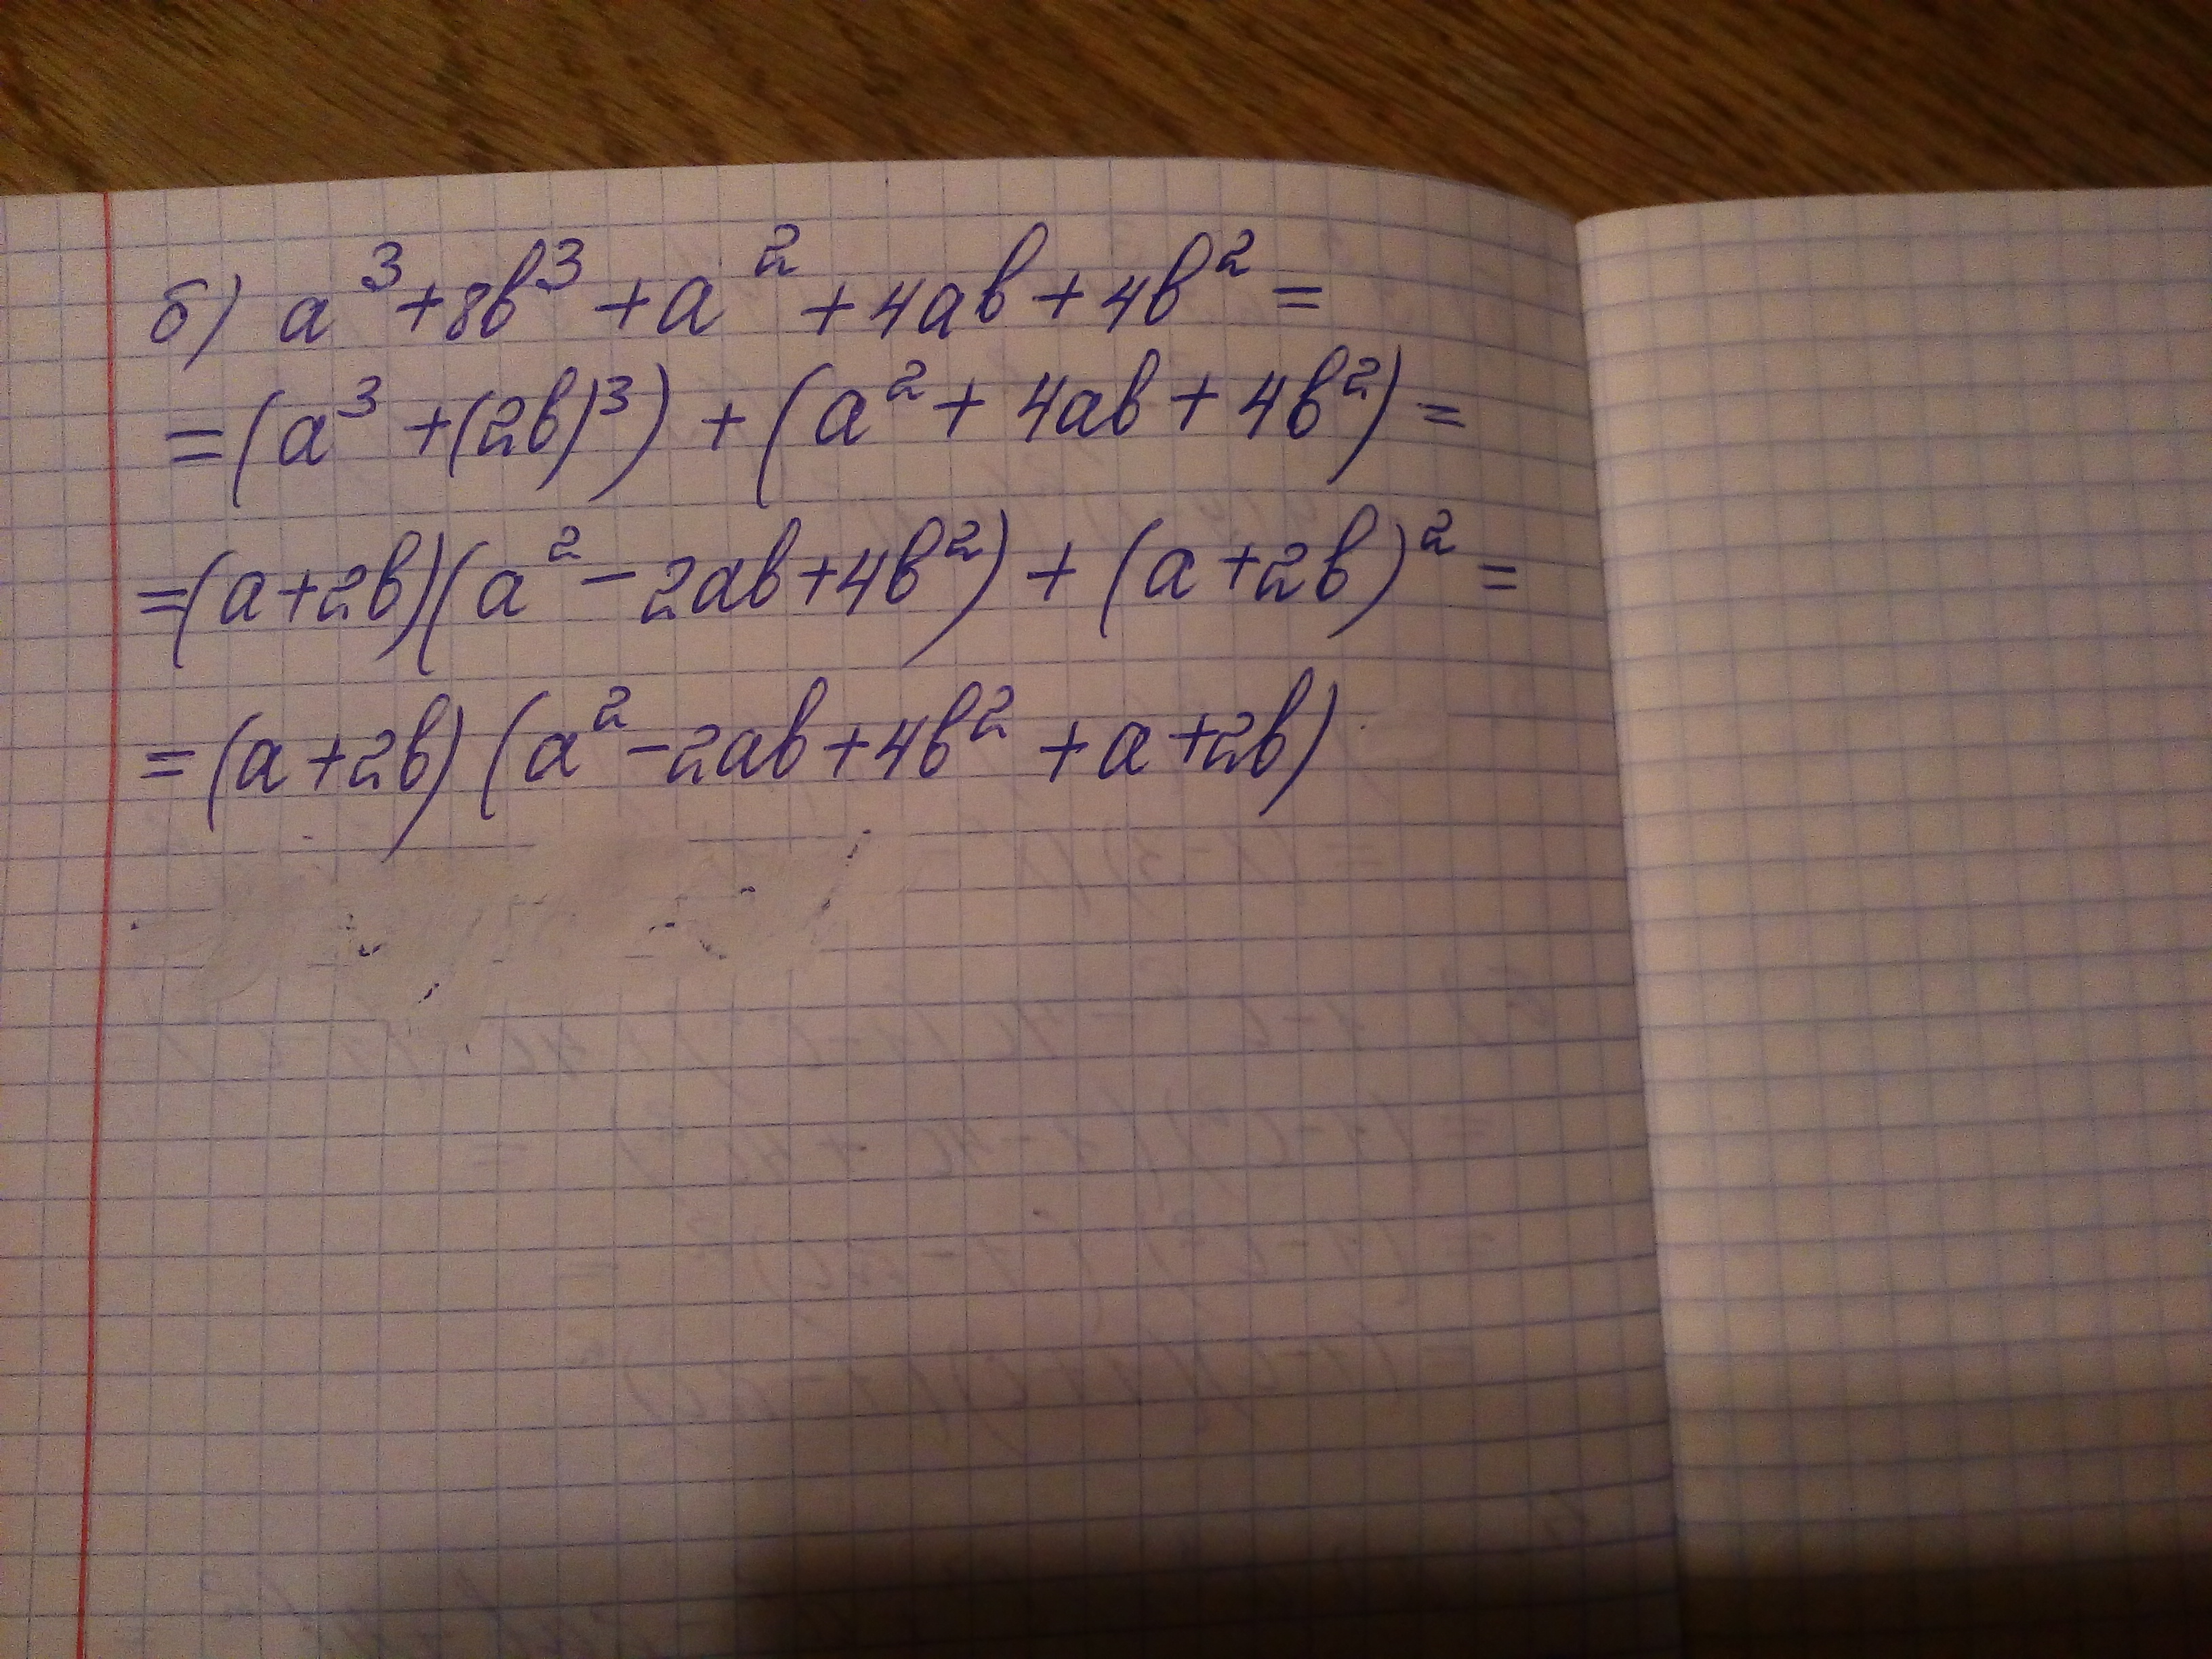 б) a³+8b³+a²+4ab+4b²=
=(a³+(2b)³)+(a²+4ab+4b²)=
=(a+2b)(a²-2ab+4b²)+(a+2b)²=
=(a+2b)(a²-2ab+4b²+a+2b)